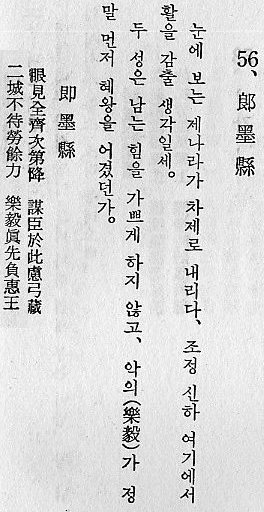 56、郎墨縣
눈에 보는 제나라가 차제로 내리다、조정 신하 여기에서
활을 감출 생각일세。
두 성은 남는 힘을 가쁘게 하지 않고、악의(樂毅)가 정
말 먼저 혜왕을 어겼던가。
即墨縣
眼見全齊次第降 謀臣於此慮弓藏
二城不待勞餘力 樂毅眞先負惠王